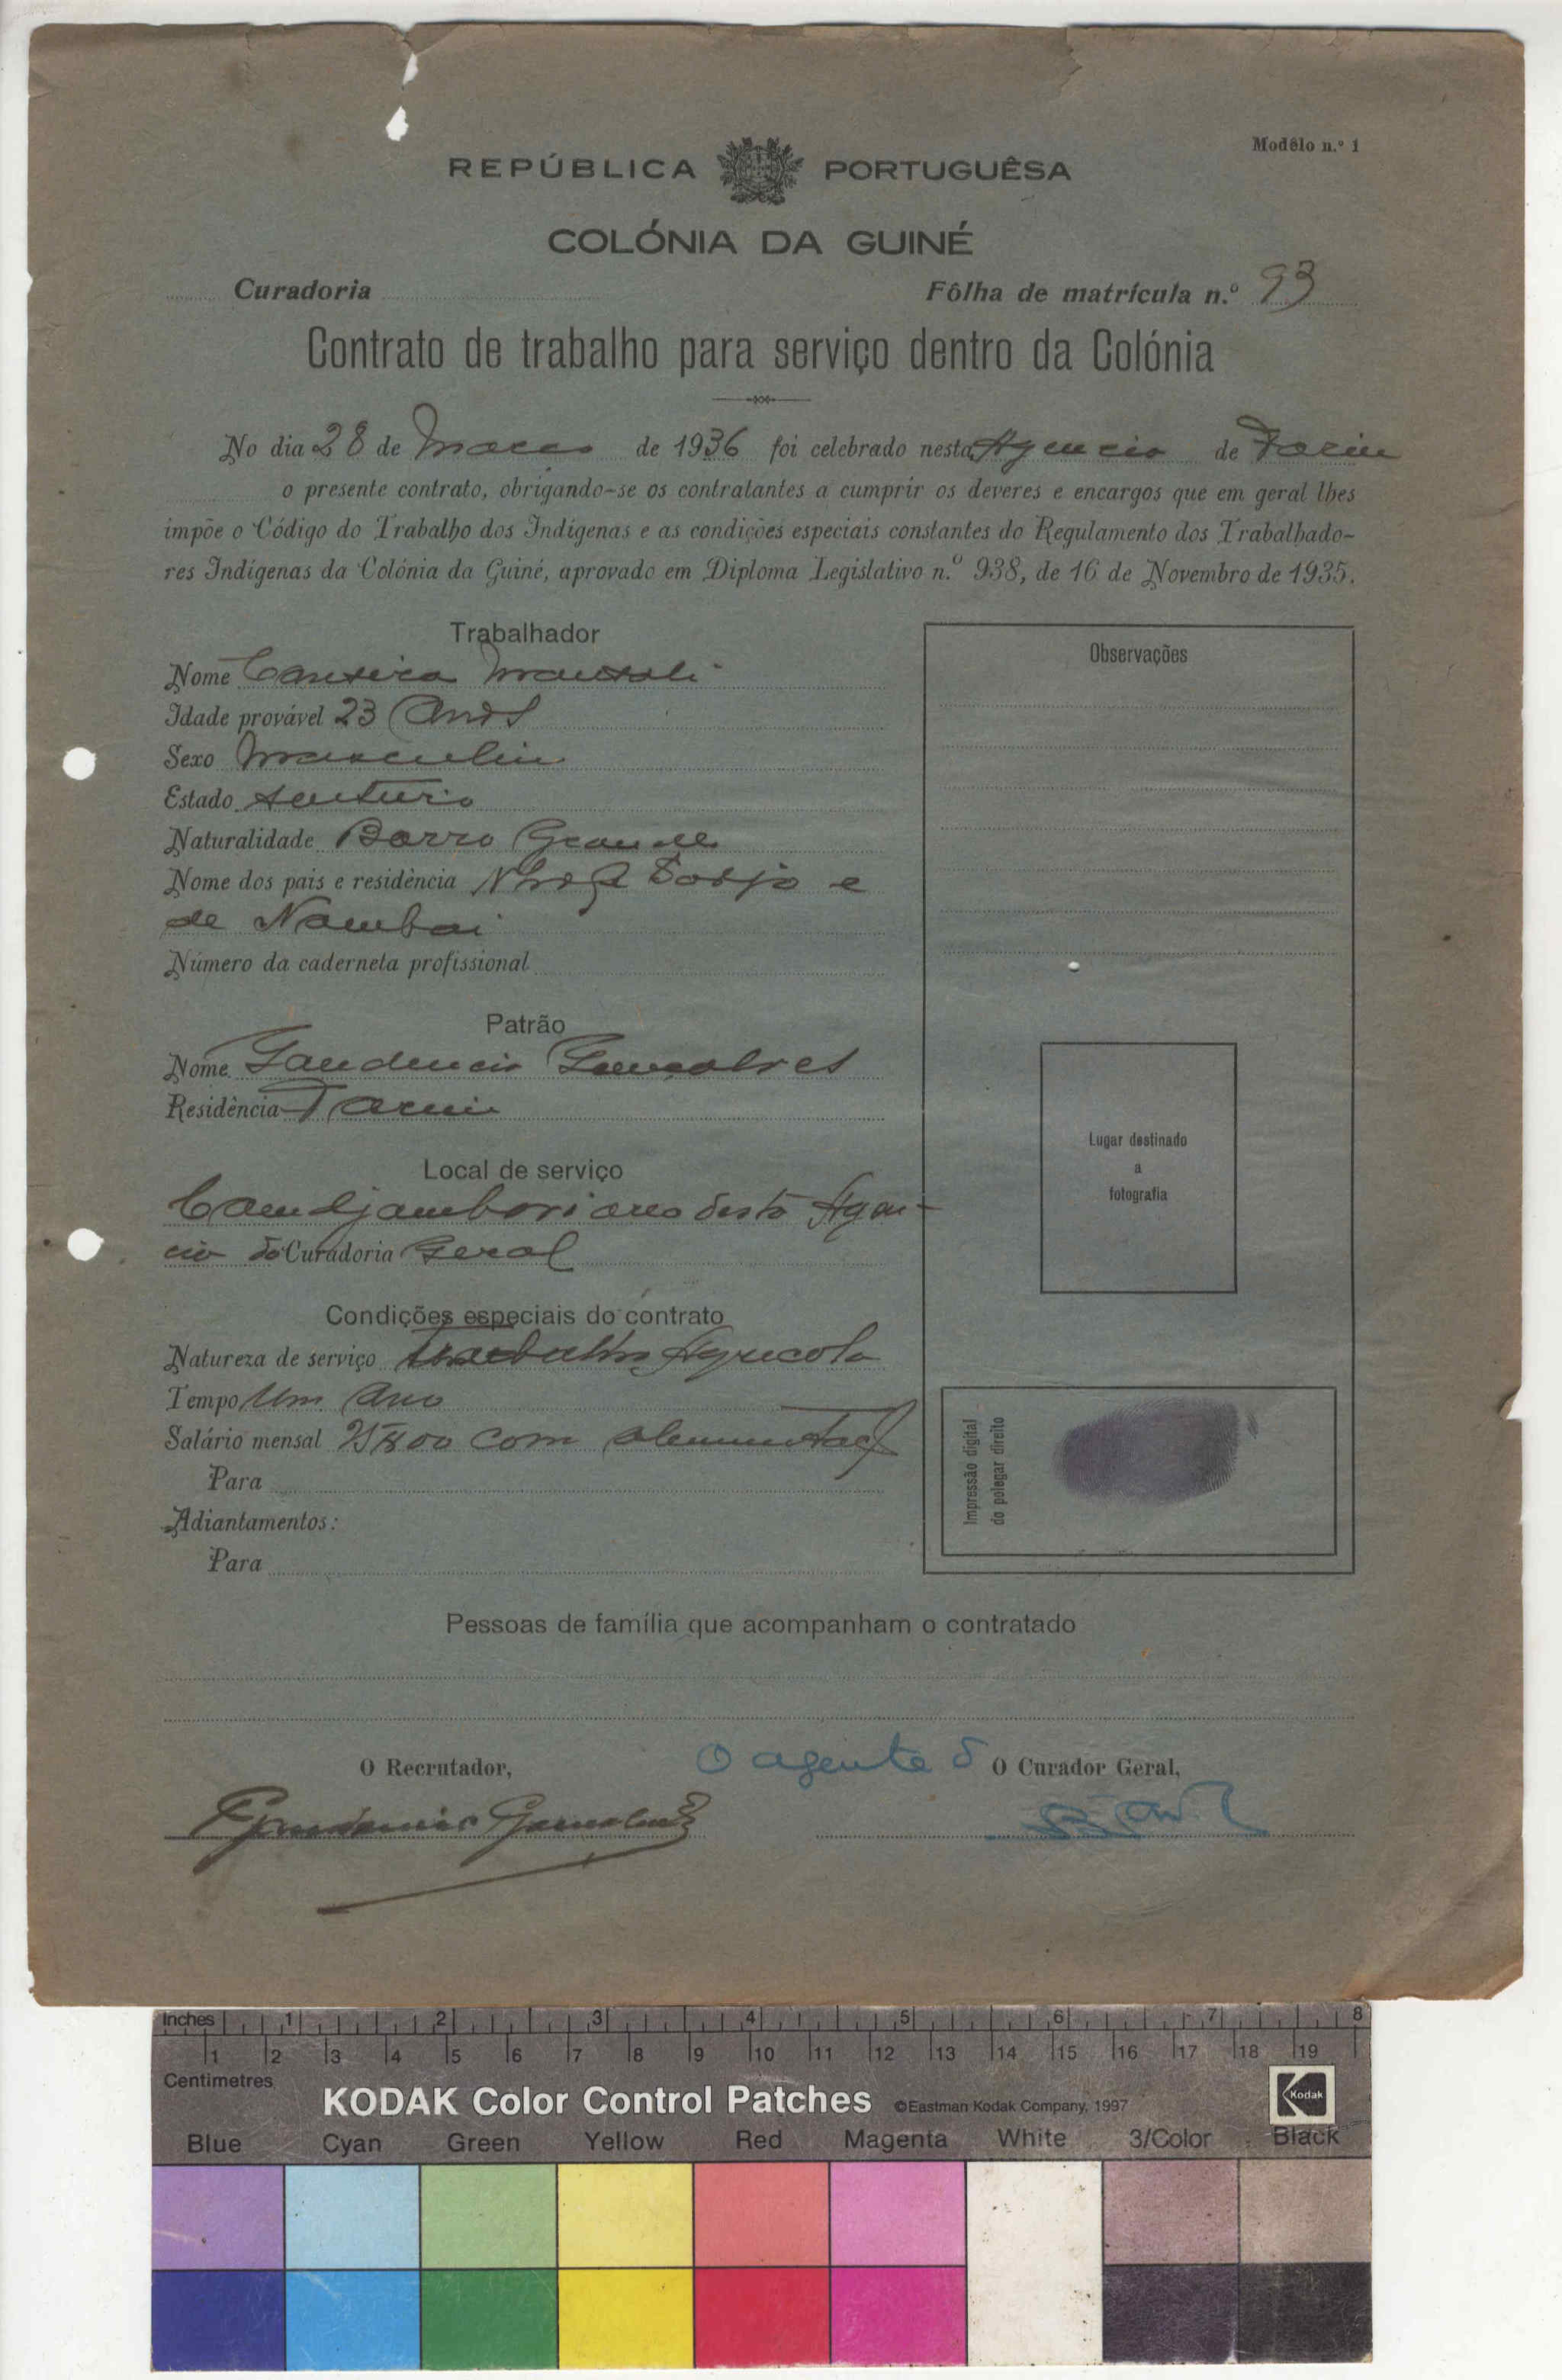 Modêlo n.º 1
REPÚBLICA PORTUGUÊSA
COLÓNIA DA GUINÉ
Curadoria Fôlha de matrícula n.º 93
Contrato de trabalho para serviço dentro da Colónia
No dia 28 de Março de 1936 foi celebrado nesta Agencia de Farim
o presente contrato, obrigando-se os contratantes a cumprir os deveres e encargos que em geral lhes
impõe o Código do Trabalho dos Indígenas e as condições especiais constantes do Regulamento dos Trabalhado-
res Indígenas da Colónia da Guiné, aprovado em Diploma Legislativo n.º 938, de 16 de Novembro de 1935.
Trabalhador
Nome
Idade provável 23 Anos
Sexo Masculino
Estado
Naturalidade Barro Grande
Nome dos pais e residência e
de Nambai
Número da caderneta profissional
Patrão
Nome Gaudencio Gonçalves
Residência Farim
Local de serviço
desta Agen-
cia da Curadoria Geral
Condições especiais do contrato
Natureza de serviço trabalho Agricola
Tempo Um Ano
Salário mensal com
Para
Adiantamentos:
Para
Observações
Lugar destinado
a
fotografia
Impressão digital
do polegar direito
Pessoas de família que acompanham o contratado
O Recrutador, O agente d O Curador Geral,
Gaudencio Gonçalves
Inches 1 2 3 4 5 6 7 8
1 2 3 4 5 6 7 8 9 10 11 12 13 14 15 16 17 18 19
Centimetres
KODAK Color Control Patches ©Eastman Kodak Company, 1997 Kodak
Blue Cyan Green Yellow Red Magenta White 3/Color Black